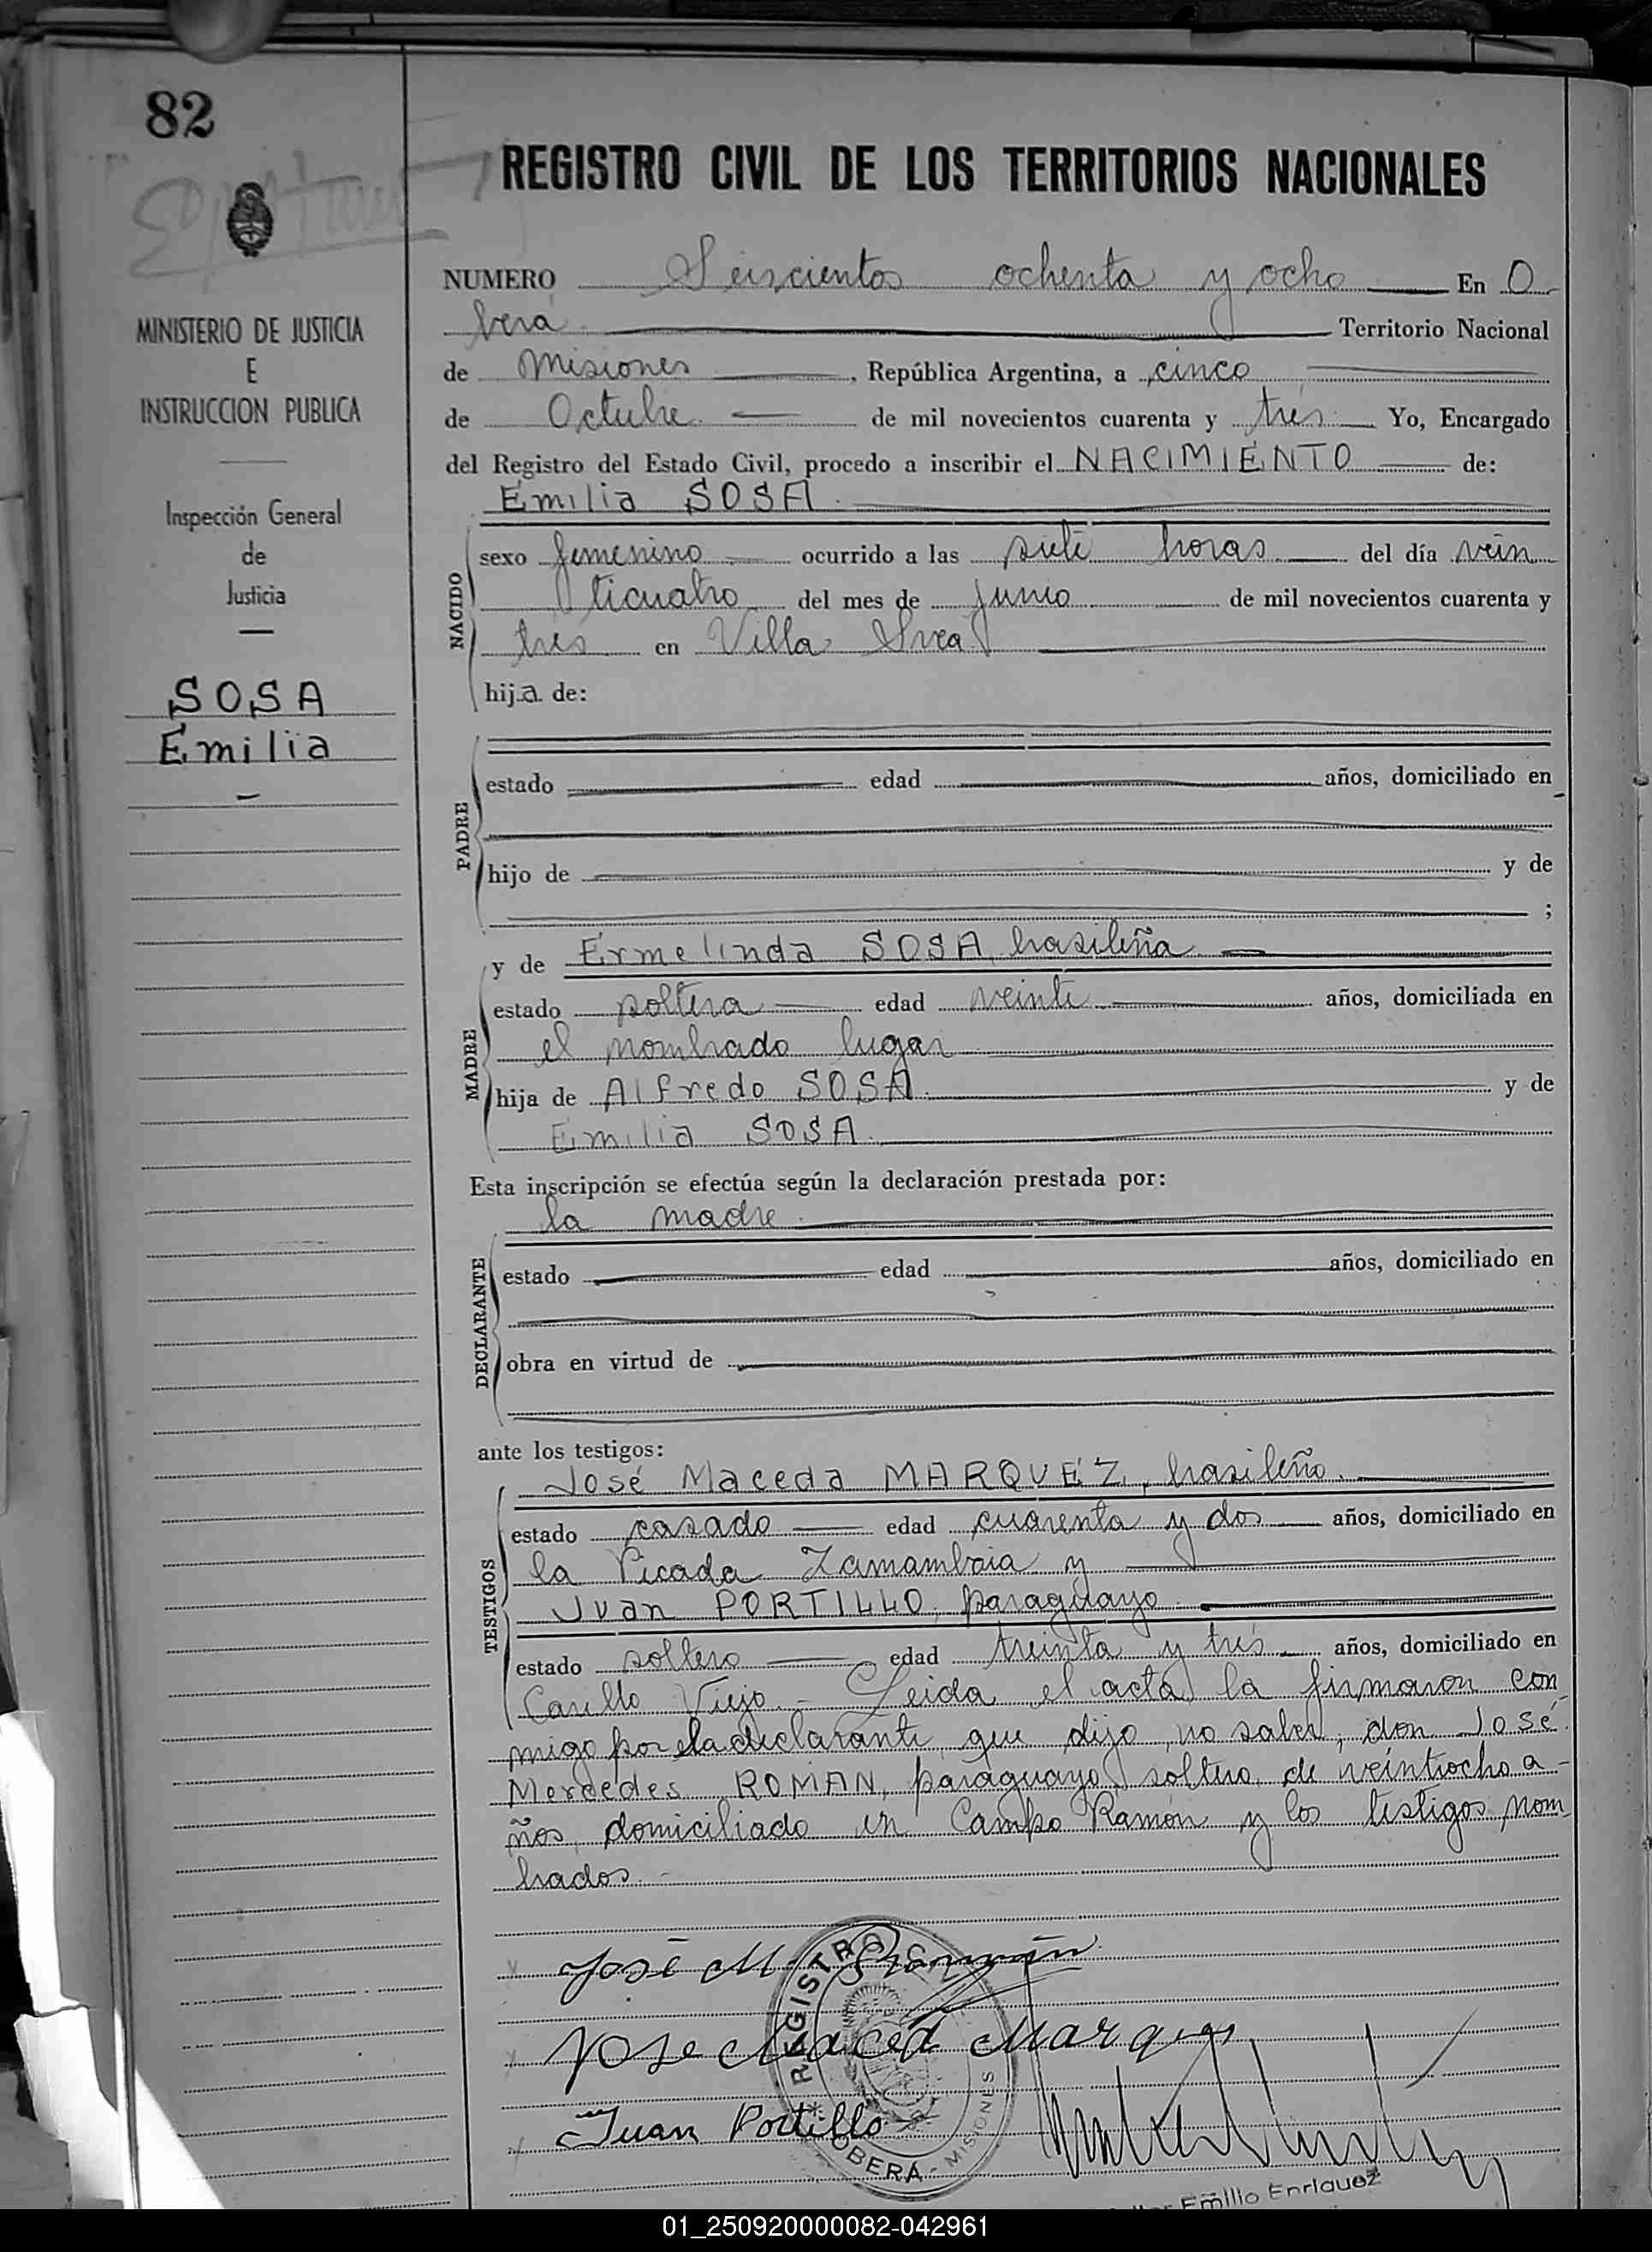 82
REGISTRO CIVIL DE LOS TERRITORIOS NACIONALES
MINISTERIO DE JUSTICIA
E
INSTRUCCION PUBLICA
Inspección General
de
Justicia
SOSA
Emilia
NUMERO Seiscientos ochenta y ocho En O
berá Territorio Nacional
de Misiones, República Argentina, a cinco
de Octubre de mil novecientos cuarenta y tres Yo, Encargado
del Registro del Estado Civil, procedo a inscribir el NACIMIENTO de:
Emilia SOSA.
NACIDO
sexo femenino ocurrido a las siete horas del día vein
ticuatro del mes de junio de mil novecientos cuarenta y
tres en Villa Svea
hija de:
PADRE
estado edad años, domiciliado en
hijo de y de
;
y de Ermelinda SOSA, brasileña
MADRE
estado soltera edad veinte años, domiciliada en
el nombrado lugar
hija de Alfredo SOSA y de
Emilia SOSA.
Esta inscripción se efectúa según la declaración prestada por:
la madre
DECLARANTE
estado edad años, domiciliado en
obra en virtud de
ante los testigos:
José Maceda MARQUEZ, brasileño.
TESTIGOS
estado casado edad cuarenta y dos años, domiciliado en
la Picada Zamambaia y
Juan PORTILLO, paraguayo
estado soltero edad treinta y tres años, domiciliado en
Viejo.- Leida el acta la firmaron con
migo por la declarante, que dijo no saber, don José
Mercedes ROMAN, paraguayo, soltero, de veintiocho a-
ños, domiciliado en Campo Ramón y los testigos nom
brados.-
José M. Román
Jose Maced Marques
Juan Portillo
REGISTRO
OBERÁ - MISIONES
Emilio Enriquez
01_250920000082-042961